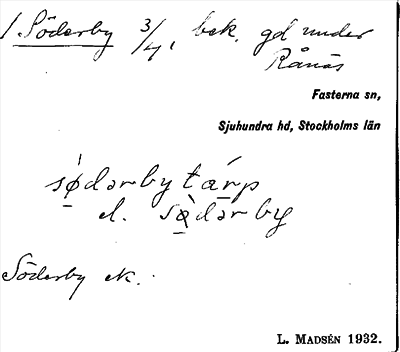 1. Söderby 3/4, bek. gd under
Rånäs
Fasterna sn,
Sjuhundra hd, Stockholms län
sø̀dərbytárp
el. sø̀dərby
Söderby ek.
L. MADSÉN 1932.